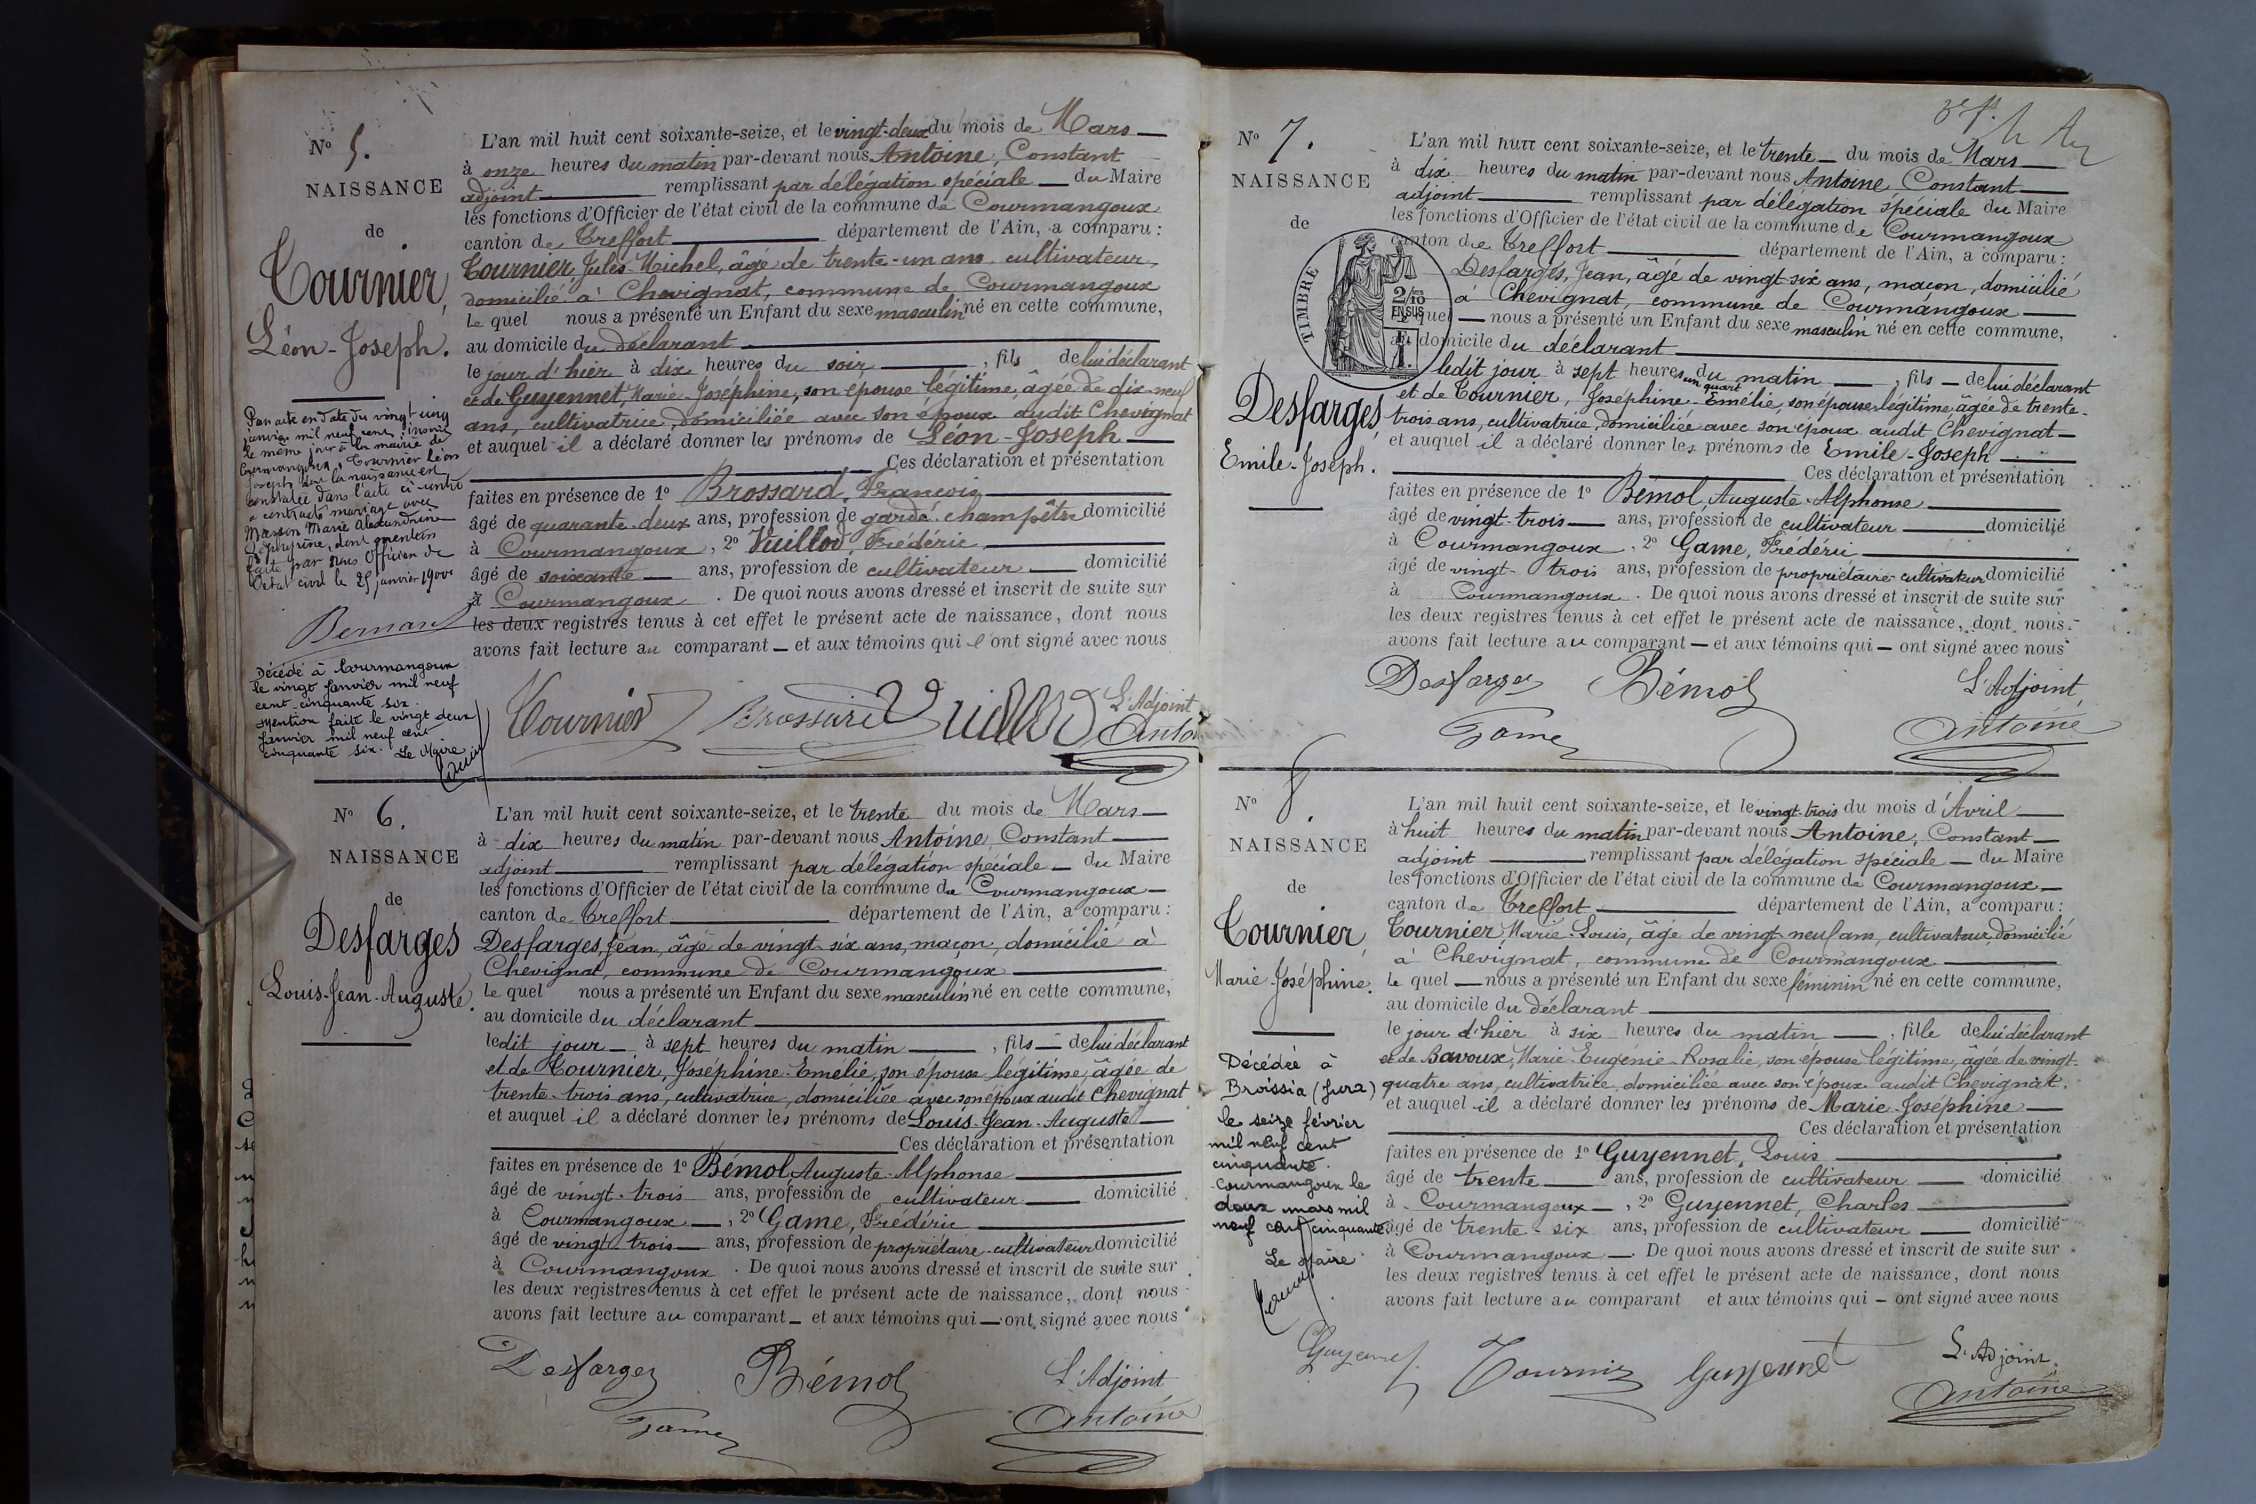 N° 5.
NAISSANCE
de
Tournier,
Léon-Joseph.
Par acte en date du vingt cinq
janvier mil neuf cent, inscrit
le même jour à la mairie de
Courmangoux, Tournier Léon
Joseph dont la naissance est
constatée dans l'acte ci-contre
a contracté mariage avec
Marie Alexandrine
Joséphine, dont mention
faite par nous Officier de
l'état civil le 25 janvier 1900
Décédé à Courmangoux
le vingt janvier mil neuf
cent cinquante six.
Mention faite le vingt deux
janvier mil neuf cent
cinquante six. Le Maire
L'an mil huit cent soixante-seize, et le vingt-deux du mois de Mars
à onze heures du matin par-devant nous Antoine, Constant
adjoint remplissant par délégation spéciale du Maire
les fonctions d'Officier de l'état civil de la commune de Courmangoux
canton de Treffort département de l'Ain, a comparu :
Tournier, Jules-Michel, âgé de trente-un ans, cultivateur,
domicilié à Chevignat, commune de Courmangoux
Le quel nous a présenté un Enfant du sexe masculin né en cette commune,
au domicile du déclarant
le jour d'hier à dix heures du soir, fils de lui déclarant
et de Guyennet, Marie-Joséphine, son épouse légitime, âgée de dix-neuf
ans, cultivatrice, domiciliée avec son époux audit Chevignat
et auquel il a déclaré donner les prénoms de Léon-Joseph
Ces déclaration et présentation
faites en présence de 1° Brossard, François
âgé de quarante-deux ans, profession de garde-champêtre domicilié
à Courmangoux, 2° Vuillod, Frédéric
âgé de soixante ans, profession de cultivateur domicilié
à Courmangoux. De quoi nous avons dressé et inscrit de suite sur
les deux registres tenus à cet effet le présent acte de naissance, dont nous
avons fait lecture au comparant et aux témoins qui ont signé avec nous
Tournier Brossard Vuillod L'Adjoint
Antoi
N° 6.
NAISSANCE
de
Desfarges
Louis-Jean-Auguste.
L'an mil huit cent soixante-seize, et le trente du mois de Mars
à dix heures du matin par-devant nous Antoine, Constant
adjoint remplissant par délégation spéciale du Maire
les fonctions d'Officier de l'état civil de la commune de Courmangoux
canton de Treffort département de l'Ain, a comparu :
Desfarges, Jean, âgé de vingt-six ans, maçon, domicilié à
Chevignat, commune de Courmangoux
Le quel nous a présenté un Enfant du sexe masculin né en cette commune,
au domicile du déclarant
ledit jour à sept heures du matin, fils de lui déclarant
et de Tournier, Joséphine-Emélie, son épouse légitime, âgée de
trente-trois ans, cultivatrice, domiciliée avec son époux audit Chevignat
et auquel il a déclaré donner les prénoms de Louis-Jean-Auguste
Ces déclaration et présentation
faites en présence de 1° Bémol, Auguste-Alphonse
âgé de vingt-trois ans, profession de cultivateur domicilié
à Courmangoux, 2° Game, Frédéric
âgé de vingt-trois ans, profession de propriétaire-cultivateur domicilié
à Courmangoux. De quoi nous avons dressé et inscrit de suite sur
les deux registres tenus à cet effet le présent acte de naissance, dont nous
avons fait lecture au comparant et aux témoins qui ont signé avec nous
Desfarges Bémol L'Adjoint
Game Antoine
N° 7.
NAISSANCE
de
TIMBRE
2/10
EN SUS
Desfarges,
Emile-Joseph.
L'an mil huit cent soixante-seize, et le trente du mois de Mars
à dix heures du matin par-devant nous Antoine, Constant
adjoint remplissant par délégation spéciale du Maire
les fonctions d'Officier de l'état civil de la commune de Courmangoux
canton de Treffort département de l'Ain, a comparu :
Desfarges, Jean, âgé de vingt-six ans, maçon, domicilié
à Chevignat, commune de Courmangoux
Le quel nous a présenté un Enfant du sexe masculin né en cette commune,
au domicile du déclarant
ledit jour à sept heures un quart du matin, fils de lui déclarant
et de Tournier, Joséphine-Emélie, son épouse légitime âgée de trente-
trois ans, cultivatrice, domiciliée avec son époux audit Chevignat
et auquel il a déclaré donner les prénoms de Emile-Joseph
Ces déclaration et présentation
faites en présence de 1° Bémol, Auguste-Alphonse
âgé de vingt-trois ans, profession de cultivateur domicilié
à Courmangoux, 2° Game, Frédéric
âgé de vingt-trois ans, profession de propriétaire-cultivateur domicilié
à Courmangoux. De quoi nous avons dressé et inscrit de suite sur
les deux registres tenus à cet effet le présent acte de naissance, dont nous
avons fait lecture au comparant et aux témoins qui ont signé avec nous
Desfarges Bémol L'Adjoint,
Game Antoine
N° 8.
NAISSANCE
de
Tournier,
Marie-Joséphine.
Décédée à
Broissia (Jura)
le seize février
mil neuf cent
cinquante.
Courmangoux le
deux mars mil
neuf cent cinquante
Le Maire
L'an mil huit cent soixante-seize, et le vingt-trois du mois d'Avril
à huit heures du matin par-devant nous Antoine, Constant
adjoint remplissant par délégation spéciale du Maire
les fonctions d'Officier de l'état civil de la commune de Courmangoux
canton de Treffort département de l'Ain, a comparu :
Tournier, Marie-Louis, âgé de vingt-neuf ans, cultivateur domicilié
à Chevignat, commune de Courmangoux
Le quel nous a présenté un Enfant du sexe féminin né en cette commune,
au domicile du déclarant
le jour d'hier à six heures du matin, fille de lui déclarant
et de Bavoux, Marie-Eugénie-Rosalie, son épouse légitime, âgée de vingt-
quatre ans, cultivatrice, domiciliée avec son époux audit Chevignat.
et auquel il a déclaré donner les prénoms de Marie-Joséphine
Ces déclaration et présentation
faites en présence de 1° Guyennet, Louis
âgé de trente ans, profession de cultivateur domicilié
à Courmangoux, 2° Guyennet, Charles
âgé de trente-six ans, profession de cultivateur domicilié
à Courmangoux. De quoi nous avons dressé et inscrit de suite sur
les deux registres tenus à cet effet le présent acte de naissance, dont nous
avons fait lecture au comparant et aux témoins qui ont signé avec nous
Guyennet Tournier Guyennet L'Adjoint.
Antoine